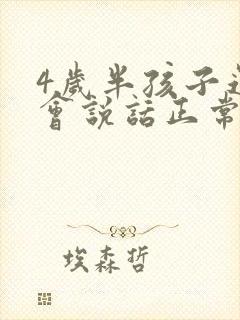 4歲半孩子
會說話正常
埃森哲